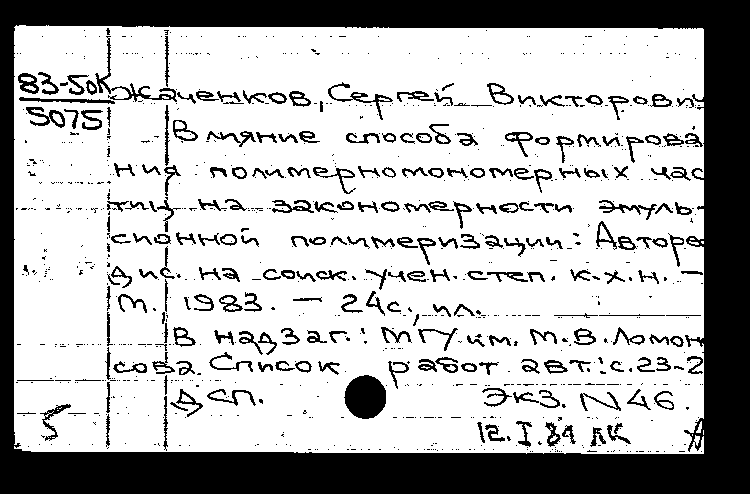 83-5ок
5075
Жаченков, Сергей Викторович
Влияние способа формирова
ния полимерномономерных час
тиц на закономерности эмуль-
сионной полимеризации: Авторе
дис. на соиск. учен. степ. к.х.н. –
М., 1983. – 24с., ил.
В надзаг.: МГУ им. М.В. Ломон
сова. Список работ авт.: с. 23-2
ДСП. Экз. N 46.
5
12.I.84 ЛК